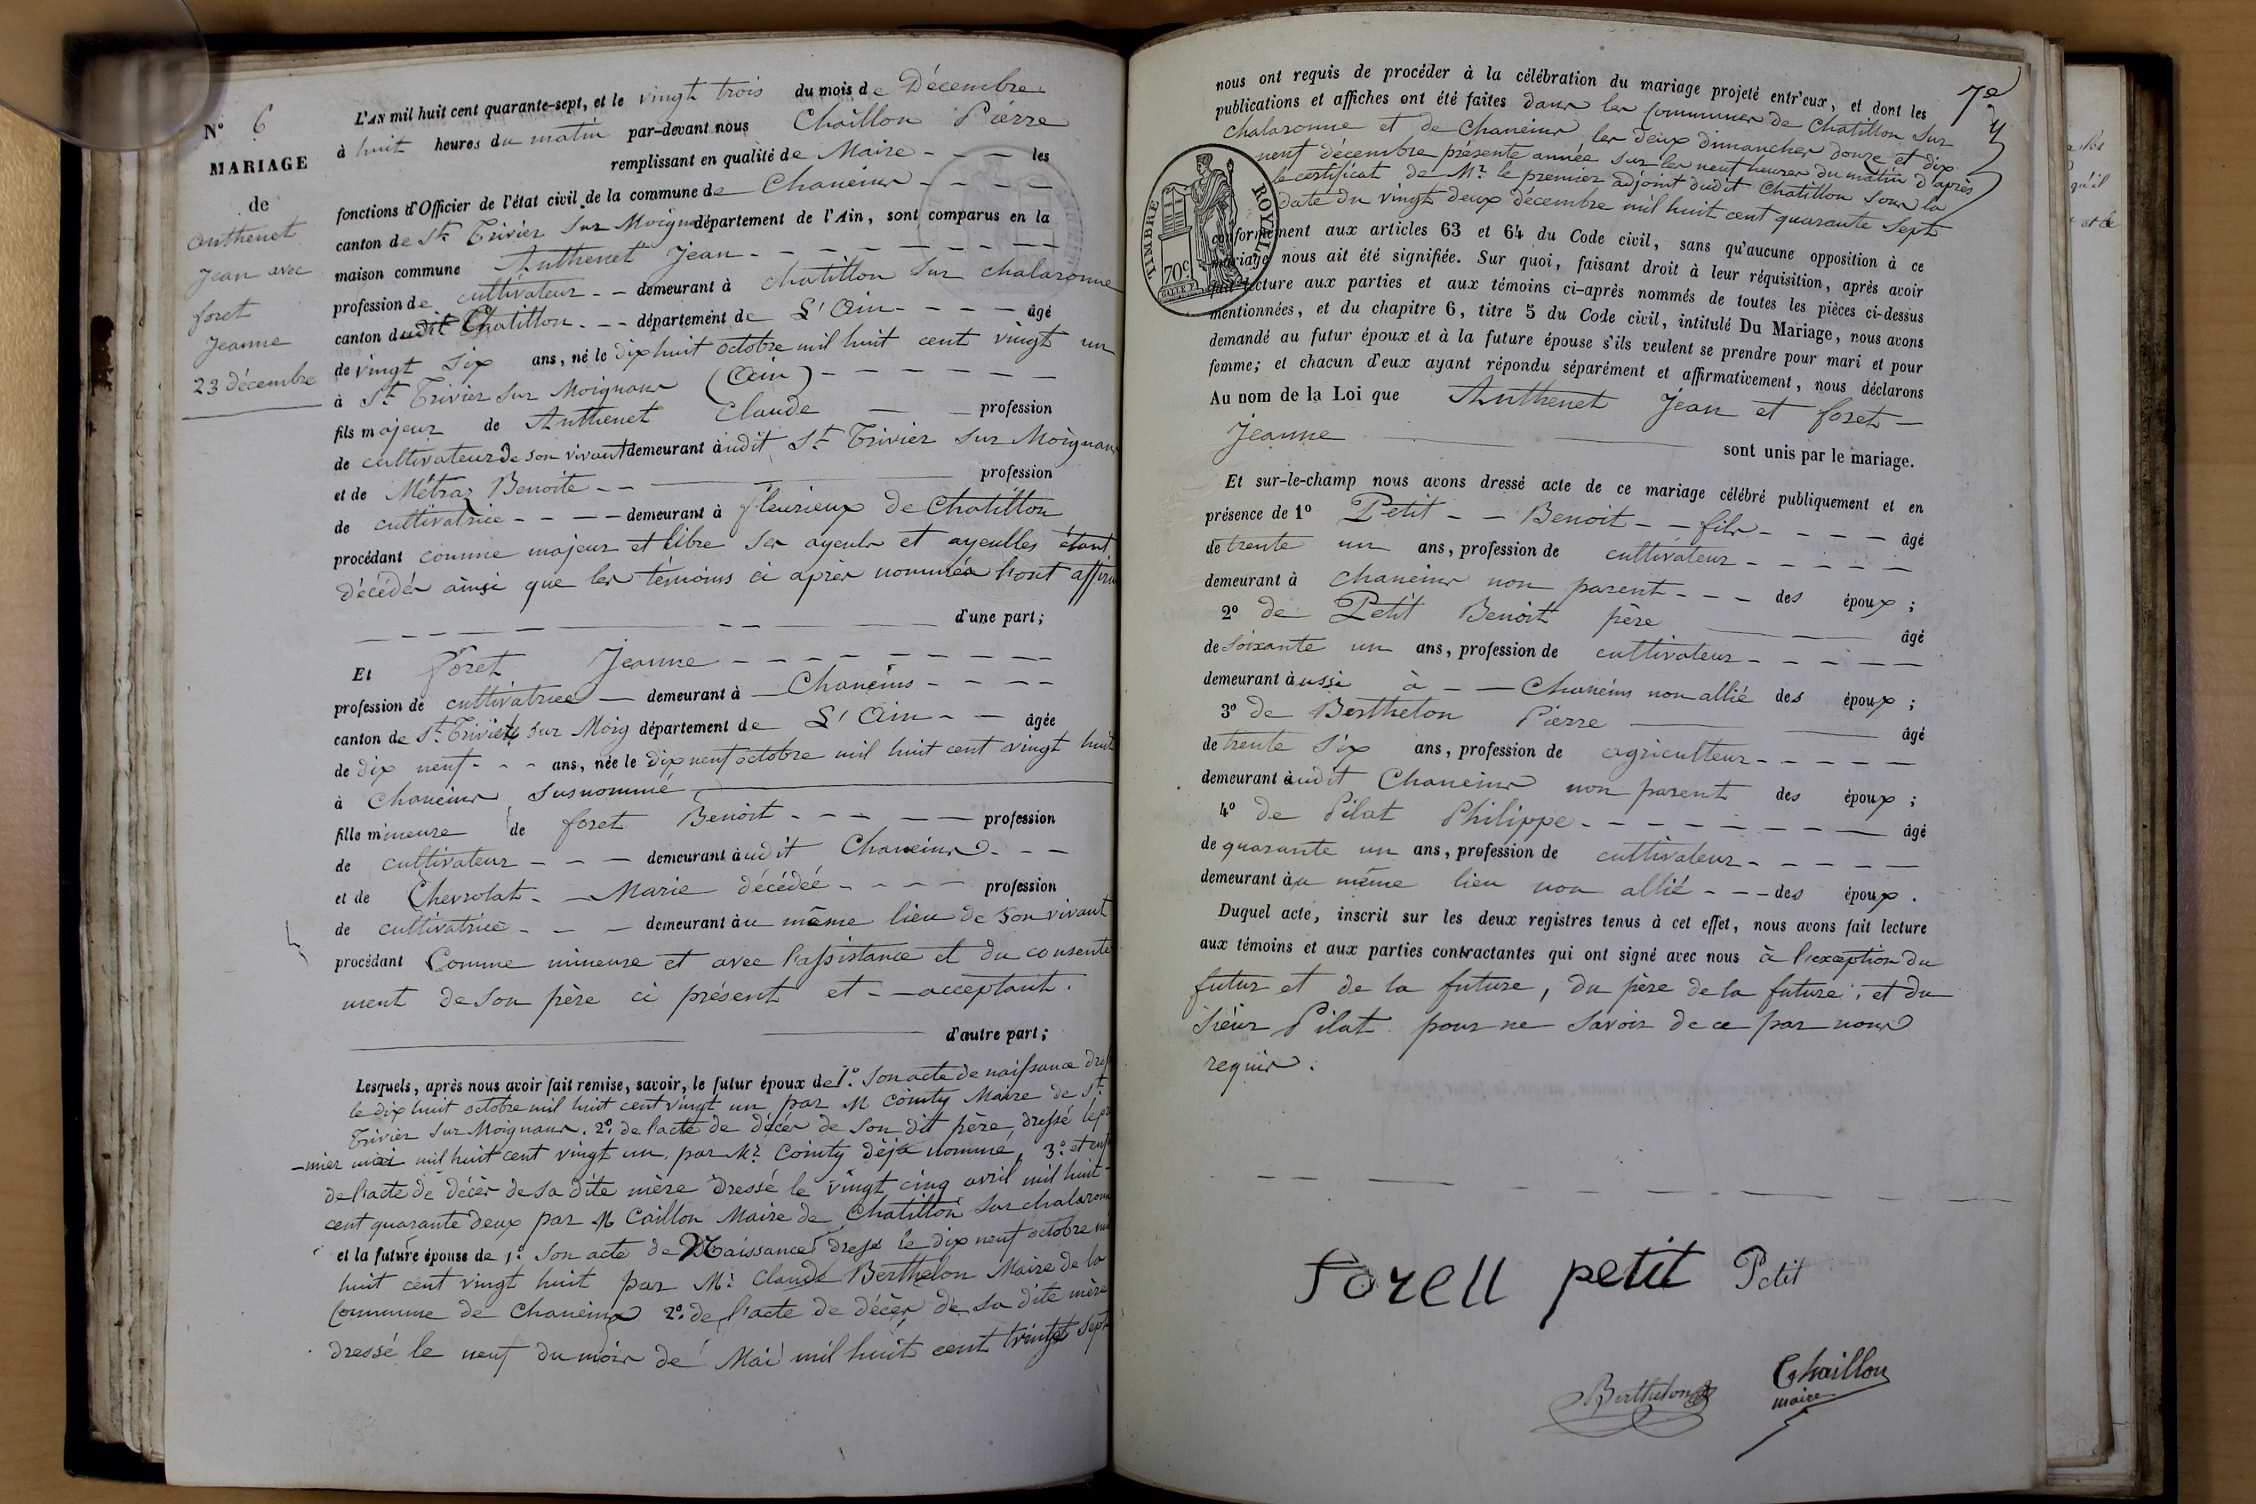 N° 6
MARIAGE
de
Anthenet
Jean avec
foret
Jeanne
23 décembre
L'AN mil huit cent quarante-sept, et le vingt trois du mois de Décembre
à huit heures du matin par-devant nous Chaillon Pierre
remplissant en qualité de Maire - - - les
fonctions d'Officier de l'état civil de la commune de Chaneins - - - -
canton de St Trivier sur Moignans département de l'Ain, sont comparus en la
maison commune Anthenet Jean - - - - - - -
profession de cultivateur - - demeurant à Chatillon sur chalaronne
canton dudit Chatillon - - - département de L'Ain - - - - âgé
de vingt six ans, né le dix huit octobre mil huit cent vingt un
à St Trivier sur Moignans (Ain) - - - - - -
fils majeur de Anthenet Claude - - profession
de cultivateur de son vivant demeurant àudit St Trivier sur Moignans
et de Métraz Benoite - - profession
de cultivatrice - - - - demeurant à fleurieux de Chatillon
procédant comme majeur et libre ses ayeuls et ayeulles étant
décédés ainsi que les témoins ci après nommés l'ont affirmé
d'une part;
Et foret Jeanne - - - - - - - - -
profession de cultivatrice - demeurant à - Chaneins - - - -
canton de St Trivier sur Moig département de L'Ain - - âgée
de dix neuf - - - ans, née le dix neuf octobre mil huit cent vingt huit
à Chaneins susnommé
fille mineure de foret Benoit - - - - - profession
de cultivateur - - - demeurant àudit Chaneins - - -
et de Chevrolat - - Marie décédée - - - - profession
de cultivatrice - - - demeurant àu même lieu de son vivant
procédant Comme mineure et avec l'assistance et du consente
ment de son père ci présent et - - acceptant.
d'autre part;
Lesquels, après nous avoir fait remise, savoir, le futur époux de 1° son acte de naissance dressé
le dix huit octobre mil huit cent vingt un par M Cointy Maire de St
Trivier sur Moignans. 2° de l'acte de décès de son dit père, dressé le pre
-mier mai mil huit cent vingt un par Mr Cointy déjà nommé, 3° et enfin
de l'acte de décès de sa dite mère dressé le vingt cinq avril mil huit
cent quarante deux par M Caillon Maire de Chatillon sur chalaronne
et la future épouse de 1° son acte de Naissance dressé le dix neuf octobre mil
huit cent vingt huit par Mr Claude Berthelon Maire de la
Commune de Chaneins 2° de l'acte de décès de sa dite mère
dressé le neuf du mois de Mai mil huit cent trente sept
nous ont requis de procéder à la célébration du mariage projeté entr'eux, et dont les
publications et affiches ont été faites dans les Communes de Chatillon sur
chalaronne et de Chaneins les deux dimanches douze et dix
neuf décembre présente année sur les neuf heures du matin d'après
le certificat de Mr le premier adjoint dudit Chatillon sous la
date du vingt deux décembre mil huit cent quarante sept
7e
TIMBRE ROYAL
70c
conformément aux articles 63 et 64 du Code civil, sans qu'aucune opposition à ce
mariage nous ait été signifiée. Sur quoi, faisant droit à leur réquisition, après avoir
fait lecture aux parties et aux témoins ci-après nommés de toutes les pièces ci-dessus
mentionnées, et du chapitre 6, titre 5 du Code civil, intitulé Du Mariage, nous avons
demandé au futur époux et à la future épouse s'ils veulent se prendre pour mari et pour
femme; et chacun d'eux ayant répondu séparément et affirmativement, nous déclarons
Au nom de la Loi que Anthenet Jean et foret -
Jeanne sont unis par le mariage.
Et sur-le-champ nous avons dressé acte de ce mariage célébré publiquement et en
présence de 1° Petit - - Benoit - - fils - - - - âgé
de trente un ans, profession de cultivateur - - - - -
demeurant à Chaneins non parent - - - des époux;
2° de Petit Benoit père âgé
de soixante un ans, profession de cultivateur - - - - -
demeurant àussi à - - Chaneins non allié des époux;
3° de Berthelon Pierre âgé
de trente six ans, profession de agriculteur - - - - -
demeurant àudit Chaneins non parent des époux;
4° de Pilat Philippe - - - - - - - - âgé
de quarante un ans, profession de cultivateur - - - - -
demeurant àu même lieu non allié - - - des époux.
Duquel acte, inscrit sur les deux registres tenus à cet effet, nous avons fait lecture
aux témoins et aux parties contractantes qui ont signé avec nous à l'exception du
futur et de la future, du père de la future, et du
sieur Pilat pour ne savoir de ce par nous
requis.
forell petit Petit
Berthelon
Chaillon
maire